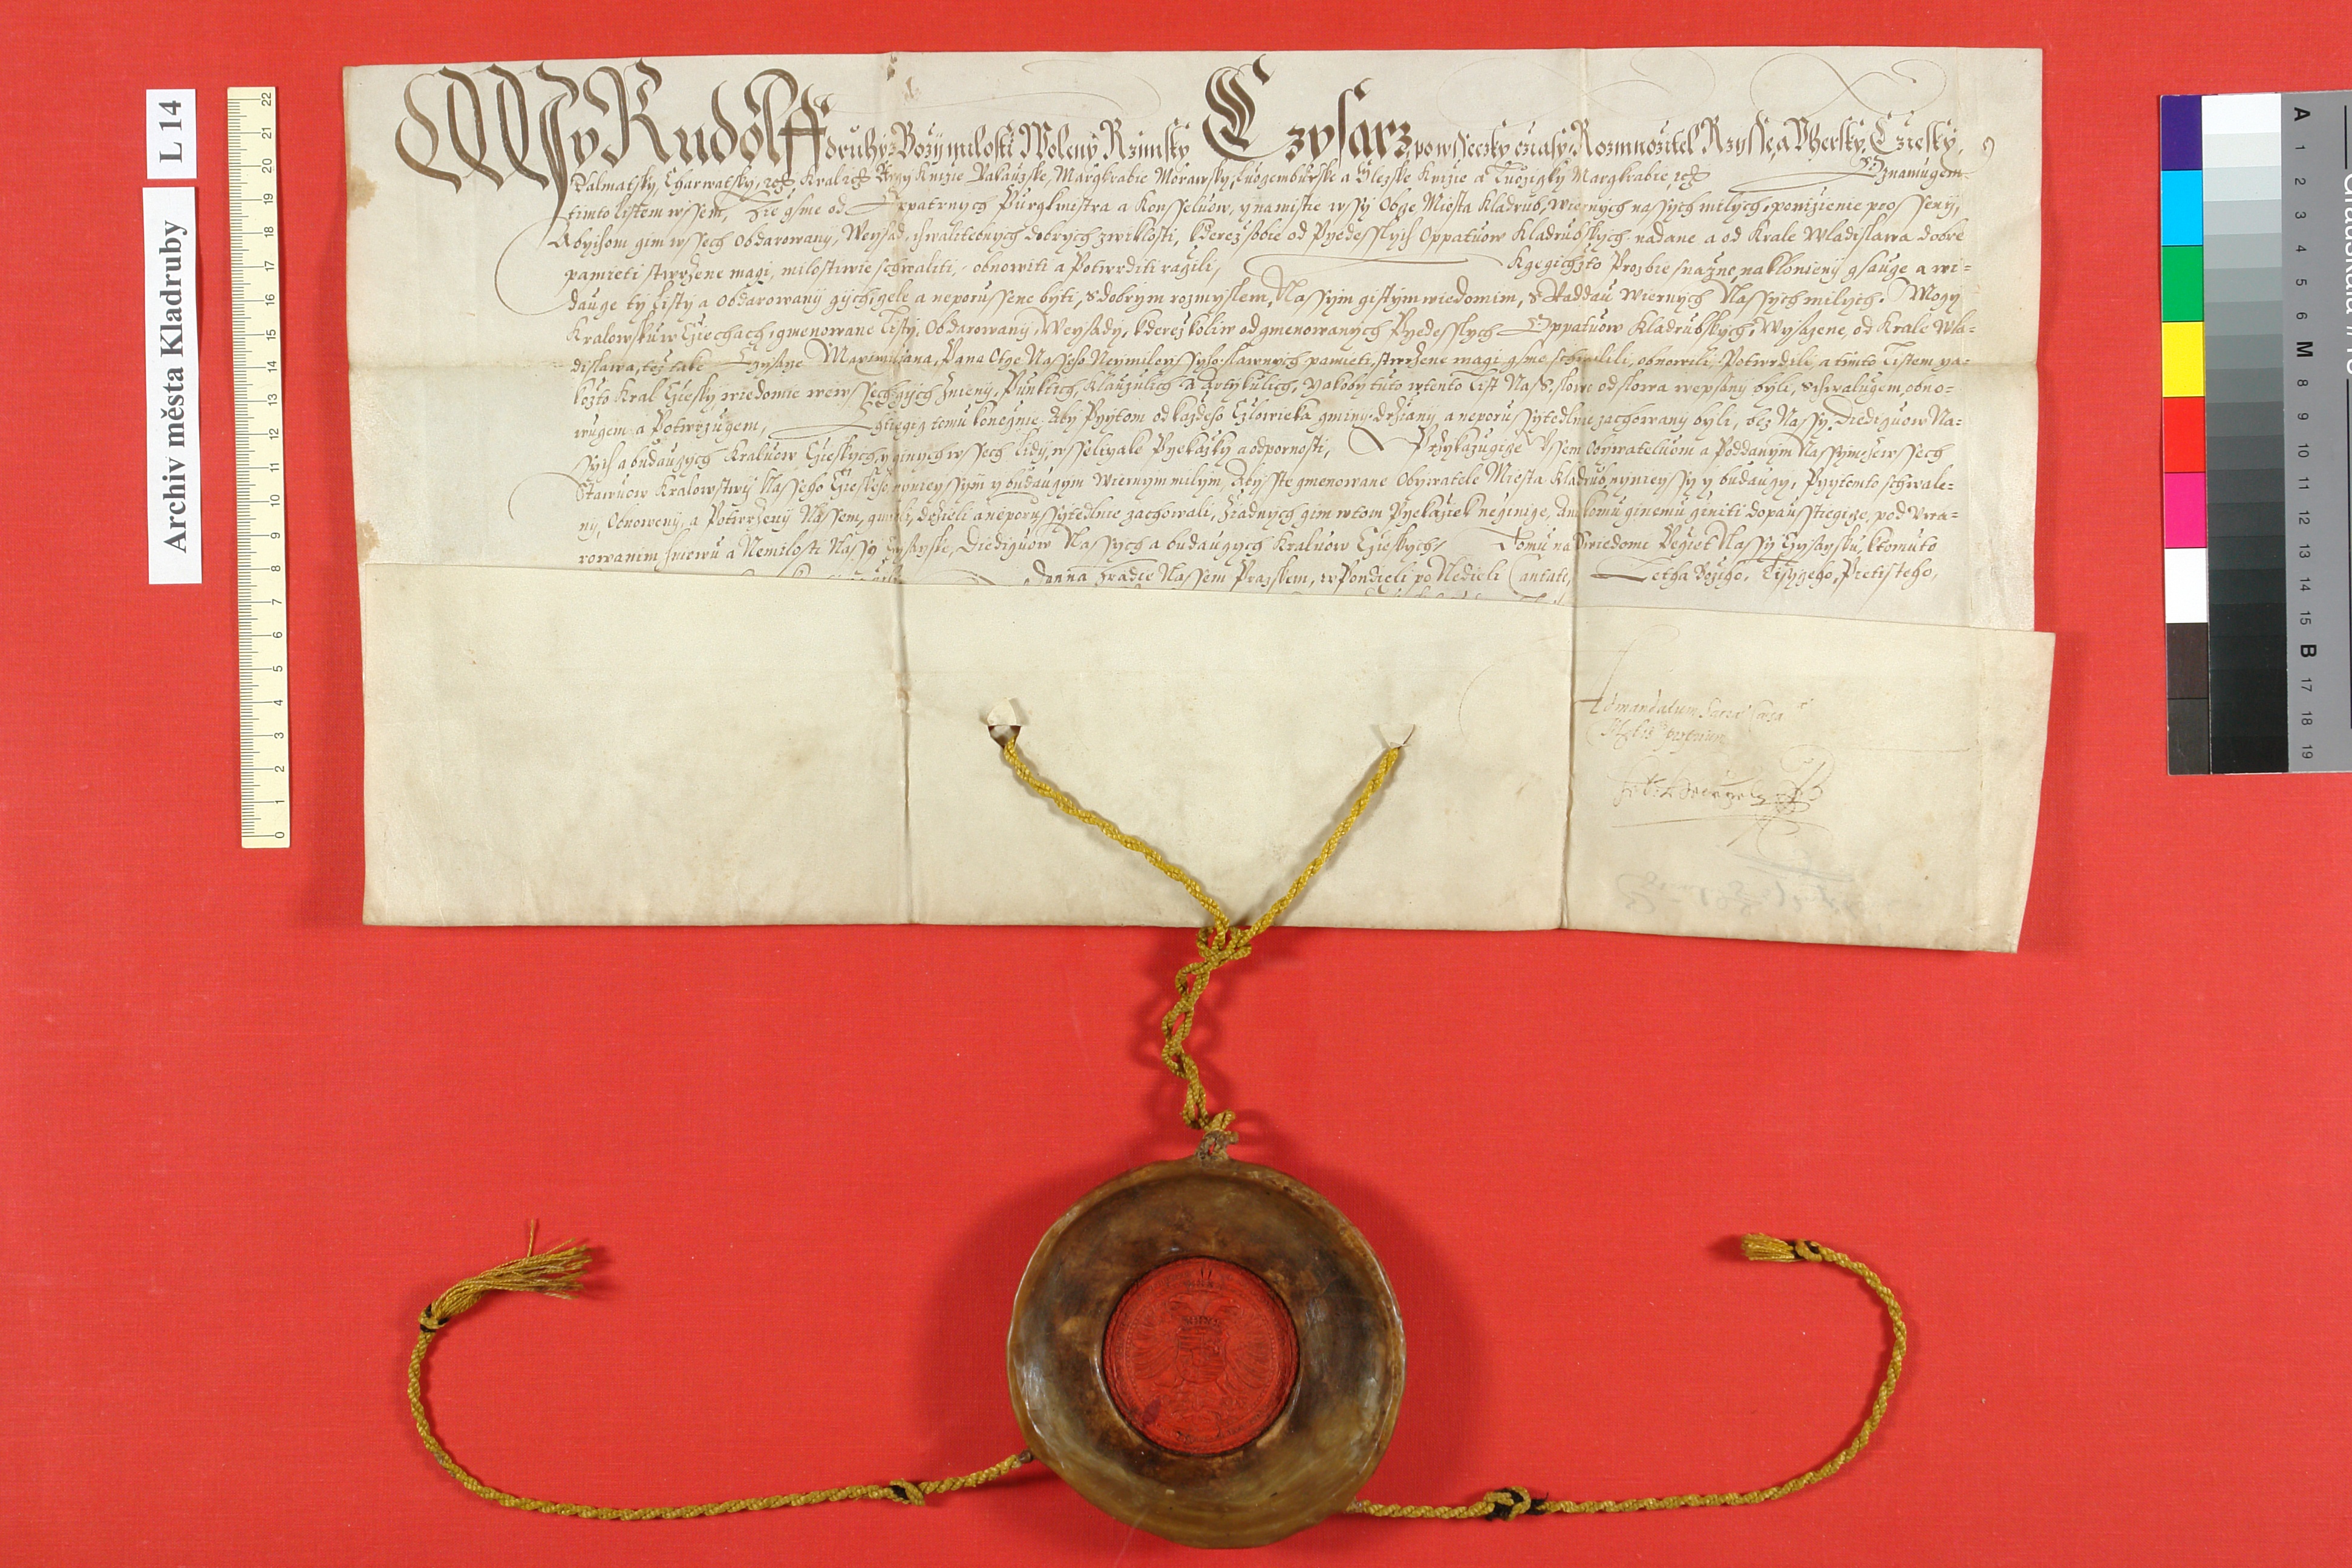 Archiv města Kladruby L 14
My Rudolff druhý z Boží milosti Wolený Rzimský Czysarz, po wsseczky cziasy Rozmnožitel Rzysse, a Vherský, Czieský,
Dalmatský, Charwatský, ꝛcꝫ Kral ꝛcꝫ Arcy Knize Rakauzské, Margkrabie Morawský, Lucemburské a Slezské Knize a Luzigký Margkrabie, ꝛcꝫ Oznamugem
timto listem wssem, Zie gsme od Oppatrnych Purgkmistra a Konsseluow, y namiste wssy Obcze Miesta Kladrub, wiernych nassych milych, ponizienie prosseny,
Abychom gim wssech Obdarowany, Weysad, chwalitebnych dobrych zwiklosti, kterez sobie od Przedesslych Oppatuow Kladrubskych nadane a od Krale Wladislawa dobre
pamieti stwrzene magi, milostiwie schwaliti, obnowiti a Potwrditi raczili, K gegichzto Prozbie snazne naklonieny gsauce a wi=
dauce ty Listy a Obdarowany gich, cele a neporussene byti, s dobrym rozmyslem, Nassym gistym wiedomim, s Raddau wiernych Nassych milych, Mocy
Kralowsku w Cziechach, gmenowane Listy, Obdarowany, Weysady, kterez koliw od gmenowanych Przedesslych Oppatuow Kladrubskych, Wysazene, od Krale Wla=
dislawa, tez take Czysarze Maximiliana, Pana Otcze Nasseho Neymileyssyho slawnych pamieti, stwrzene magi gsme schwalili, obnowili, Potwrdili, a timto Listem ya=
kozto Kral Cziesky wiedomie we wssech gich znieny, Punktich, Klauzulich a Artykulich, yakoby tuto w tento List Nass, slowo od slowa wepsany byli, schwalugem, obno=
wugem a Potwrzugem, Chtiegicz tomu konecznie Aby Przytom od kazdeho Czlowieka gmini, drziany a neporussytedlnie zachowany byli, bez Nassy, Diediczuow Na=
ssych a budauczych Kraluow Czieskych, y ginych wssech Lidy, wsselyake Przekazky a odpornosti, Przykazugicze Wssem Obywateluom a Poddanym Nassym ze wssech
Stawuow Kralowstwy Nasseho Czieskeho nynieyssym y budauczym wiernym milym, Abysste gmenowane Obywatele Miesta Kladrub, nynieyssy y budauczy, Przy temto schwale=
ny, Obnoweny, a Potwrzeny Nassem, gmieli, drzieli a neporussytedlnie zachowali, Ziadnych gim w tom Przekazek neginicze, ani komu ginemu cziniti dopausstiegicze, pod Vwa=
rowanim hniewu a Nemilosti Nassy Czysarzske, Diediczuow Nassych a budauczych Kraluow Czieskych. Tomu na Swiedomi Peczet Nassy Czysarzsku, k tomuto
Dan na Hradie Nassem Prazskem, w Pondieli po Nedieli Cantate, Letha Bozyho, Tisyczyeho, Pietisteho,
Ad mandatum Sacrae Caes:
Mtis proprium
22 21 20 19 18 17 16 15 14 13 12 11 10 9 8 7 6 5 4 3 2 1 0
A 1 2 3 4 5 6 M 8 9 10 11 12 13 14 15 B 17 18 19